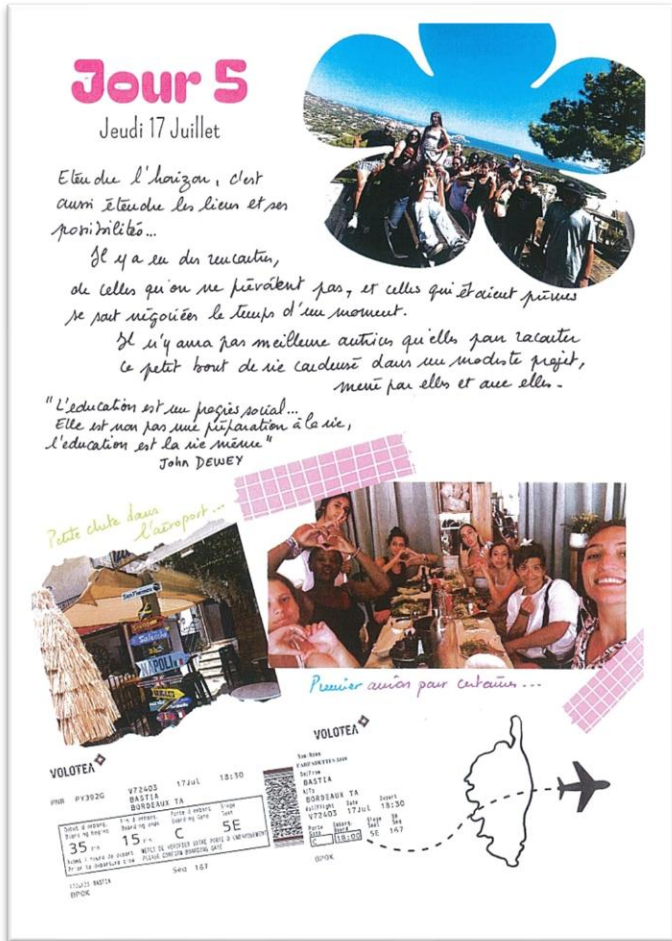 Jour 5
Jeudi 17 Juillet
Etendre l'horizon, c'est
aussi étendre les liens et ses
possibilités...
Il y a eu des rencontres,
de celles qu'on ne prévoient pas, et celles qui étaient prévues
se sont négociées le temps d'un moment.
Il n'y aura pas meilleure autrices qu'elles pour raconter
ce petit bout de vie dans un modeste projet,
mené par elles et avec elles.
"L'education est un progrès social...
Elle est non pas une préparation à la vie,
l'education est la vie même"
John DEWEY
Petite chute dans
l'aéroport...
NAPOLI
Premier avion pour certaines...
VOLOTEA
PNR PY392G V72403 17Jul 18:30
BASTIA
BORDEAUX TA
35 15 C 5E
Seq 167
BPOK
VOLOTEA
BASTIA
BORDEAUX TA
V72403 17Jul 18:30
C 18:00 5E 167
BPOK